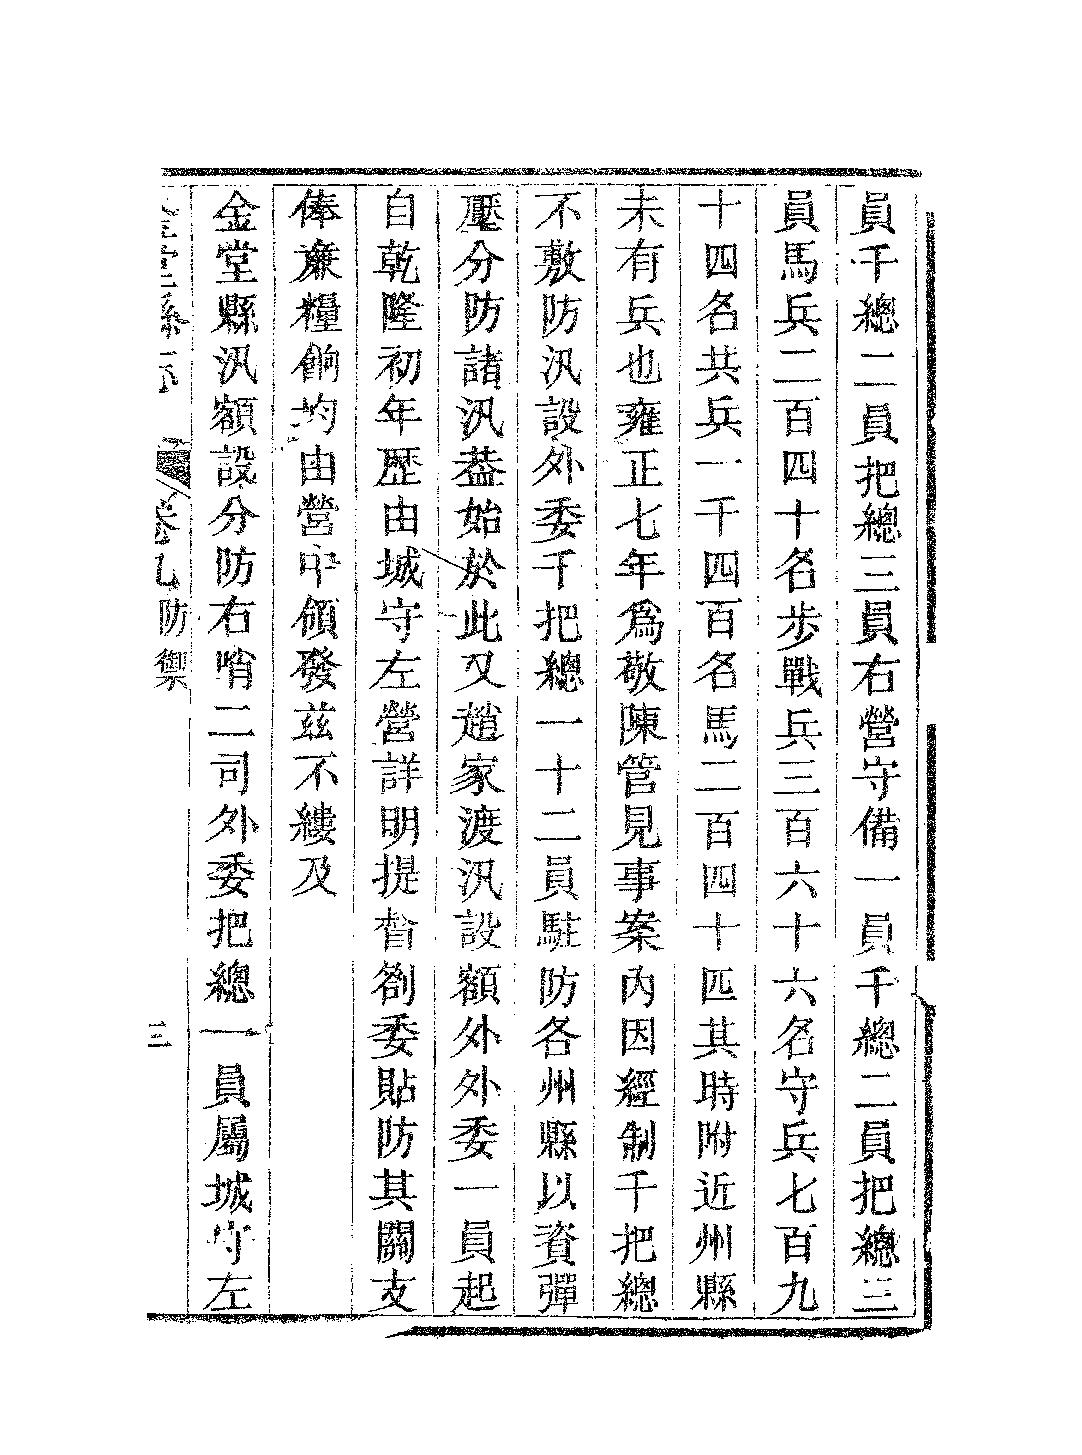 員千總二員把總三員右營守備一員千總二員把總三
員馬兵二百四十名步戰兵三百六十六名守兵七百九
十四名共兵一千四百名馬二百四十匹其時附近州縣
未有兵也雍正七年爲敬陳管見事案內因經制千把總
不敷防汛設外委千把總一十二員駐防各州縣以資彈
壓分防諸汛葢始於此又趙家渡汛設額外外委一員起
自乾隆初年歷由城守左營詳明提督劄委貼防其關支
俸廉糧餉均由營中領發茲不縷及
金堂縣汛額設分防右哨二司外委把總一員屬城守左
金堂縣志
卷九防禦
三